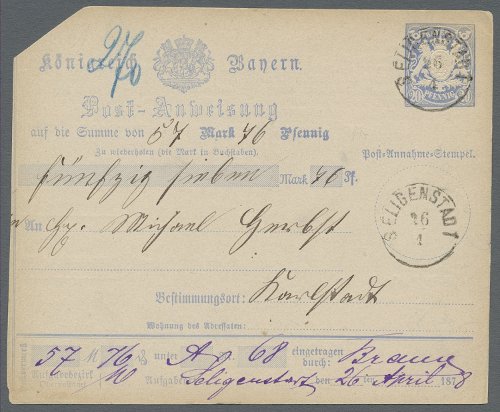 270
Königreich Bayern.
SELIGENSTADT
26
4
PFENNIG
Post-Anweisung
auf die Summe von 57 Mark 76 Pfennig
Zu wiederholen (die Mark in Buchstaben).
Post-Annahme-Stempel.
fünfzig sieben Mark 76 Pf.
An Hr. Michael Herbst
SELIGENSTADT
26
4
Bestimmungsort: Karlstadt
Wohnung des Adressaten:
57 M 76 unter A 68 eingetragen durch: Braun
Aufgabebezirk
Aufgabe Seligenstadt den 26 ter April 1878